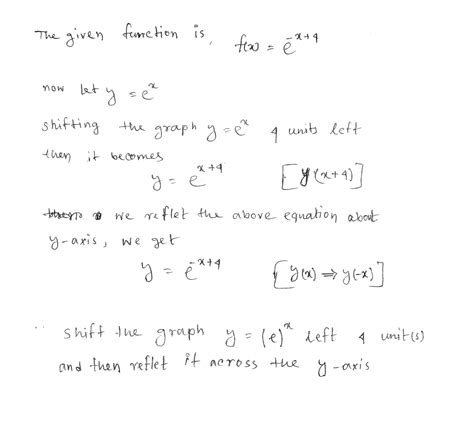 The given function is, f(x) = e^{-x+4}
now let y = e^x
shifting the graph y = e^x 4 units left
then it becomes
y = e^{x+4} [y(x+4)]
we reflet the above equation about
y-axis, we get
y = e^{-x+4} [y(x) ⇒ y(-x)]
∴ shift the graph y = (e)^x left 4 unit(s)
and then reflet it across the y-axis